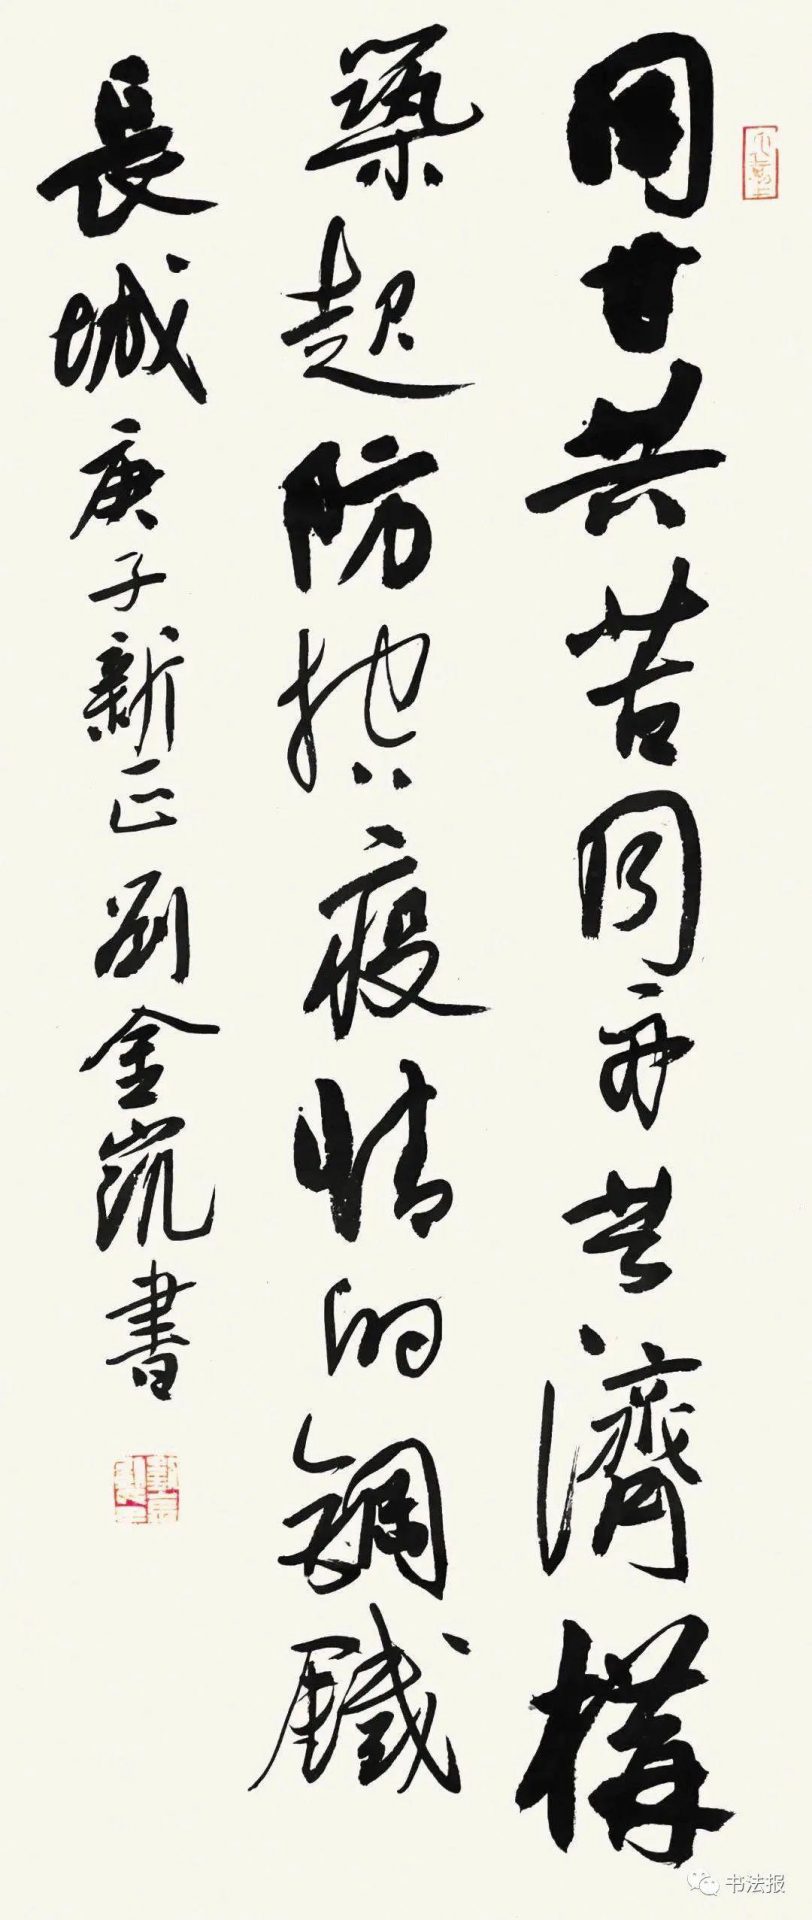 同甘共苦同舟共濟構
築起防控疫情的銅鐵
長城庚子新正劉金凱書
书法报